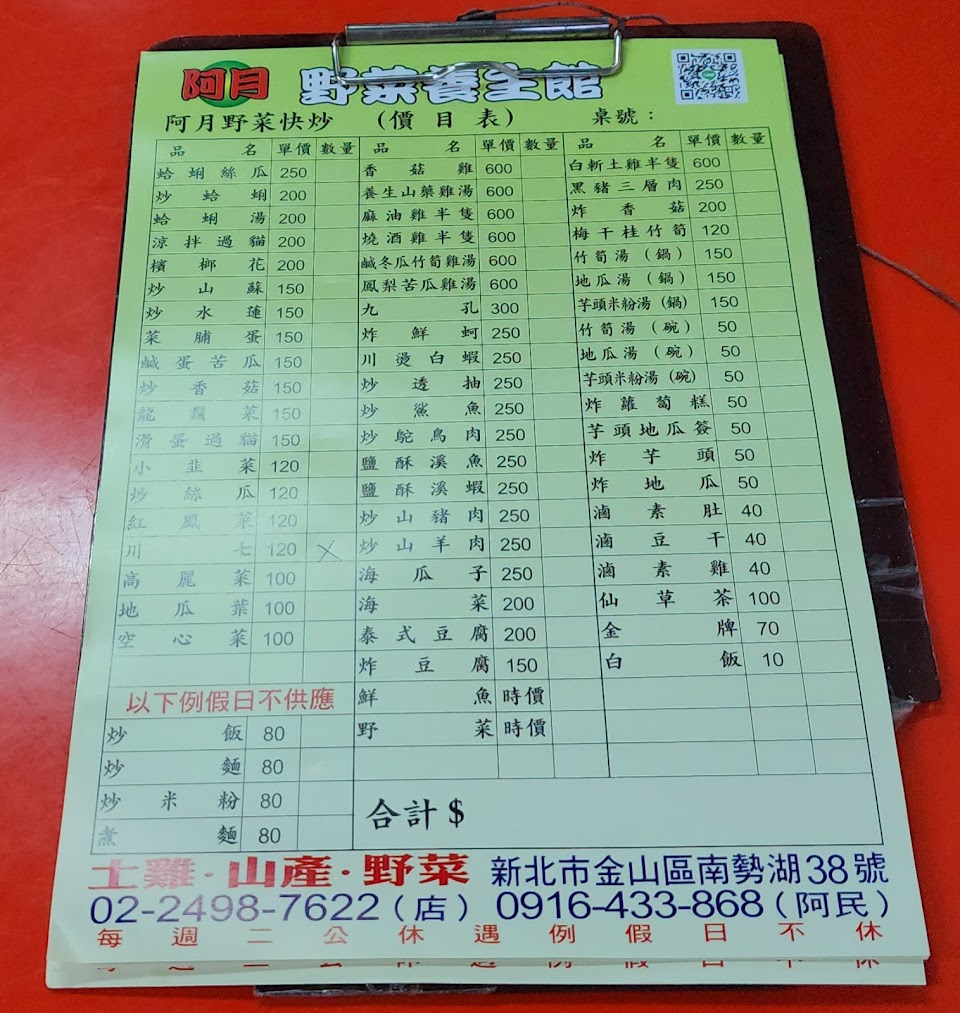 阿月 野菜養生館
阿月野菜快炒 (價目表) 桌號：
品名 單價 數量
蛤蜊絲瓜 250
炒蛤蜊 200
蛤蜊湯 200
涼拌過貓 200
檳榔花 200
炒山蘇 150
炒水蓮 150
菜脯蛋 150
鹹蛋苦瓜 150
炒香菇 150
龍鬚菜 150
滑蛋過貓 150
小韭菜 120
炒絲瓜 120
紅鳳菜 120
川七 120 X
高麗菜 100
地瓜葉 100
空心菜 100
以下例假日不供應
炒飯 80
炒麵 80
炒米粉 80
煮麵 80
品名 單價 數量
香菇雞 600
養生山藥雞湯 600
麻油雞半隻 600
燒酒雞半隻 600
鹹冬瓜竹筍雞湯 600
鳳梨苦瓜雞湯 600
九孔 300
炸鮮蚵 250
川燙白蝦 250
炒透抽 250
炒鯊魚 250
炒鴕鳥肉 250
鹽酥溪魚 250
鹽酥溪蝦 250
炒山豬肉 250
炒山羊肉 250
海瓜子 250
海菜 200
泰式豆腐 200
炸豆腐 150
鮮魚 時價
野菜 時價
品名 單價 數量
白斬土雞半隻 600
黑豬三層肉 250
炸香菇 200
梅干桂竹筍 120
竹筍湯(鍋) 150
地瓜湯(鍋) 150
芋頭米粉湯(鍋) 150
竹筍湯(碗) 50
地瓜湯(碗) 50
芋頭米粉湯(碗) 50
炸蘿蔔糕 50
芋頭地瓜簽 50
炸芋頭 50
炸地瓜 50
滷素肚 40
滷豆干 40
滷素雞 40
仙草茶 100
金牌 70
白飯 10
合計$
土雞·山產·野菜 新北市金山區南勢湖38號
02-2498-7622(店) 0916-433-868(阿民)
每週二公休遇例假日不休